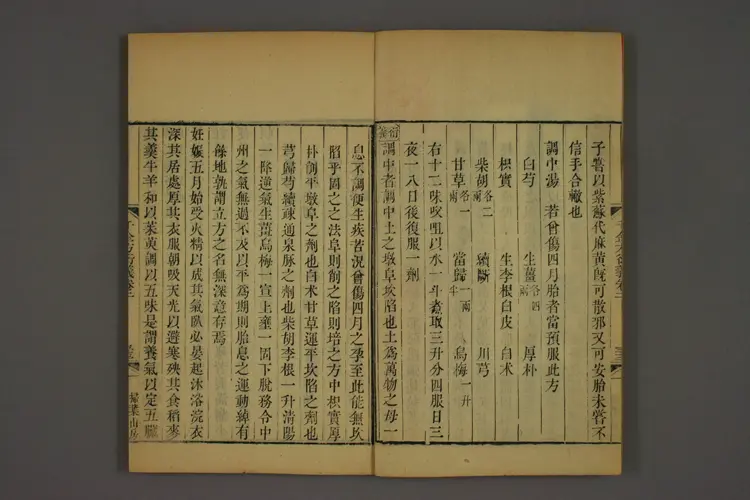 子嘗以紫蘇代麻黃旣可散邪又可安胎未嘗不
信手合轍也
調中湯 若曾傷四月胎者當預服此方
白芍 生薑各四兩 厚朴
枳實 生李根白皮 白术
柴胡各二兩 續斷 川芎
甘草各一兩 當歸一兩半 烏梅一升
右十二味㕮咀以水一斗煮取三升分四服日三
夜一八日後復服一劑
衍義
調中者調中土之墩阜坎陷也土爲萬物之母一
息不調便生疾苦況曾傷四月之孕至此能無坎
陷乎固之之法阜則削之陷則培之方中枳實厚
朴削平墩阜之劑也白术甘草運平坎陷之劑也
芎歸芍續疎通泉脉之劑也柴胡李根一升清陽
一降逆氣生薑烏梅一宣上壅一固下脫務令中
州之氣無過不及以平爲期則胎息之運動綽有
餘地孰謂立方之名無深意存焉
妊娠五月始受火精以成其氣臥必晏起沐浴浣衣
深其居處厚其衣服朝吸天光以避寒殃其食稻麥
其羹牛羊和以茱萸調以五味是謂養氣以定五臟
千金方衍義卷二
掃葉山房